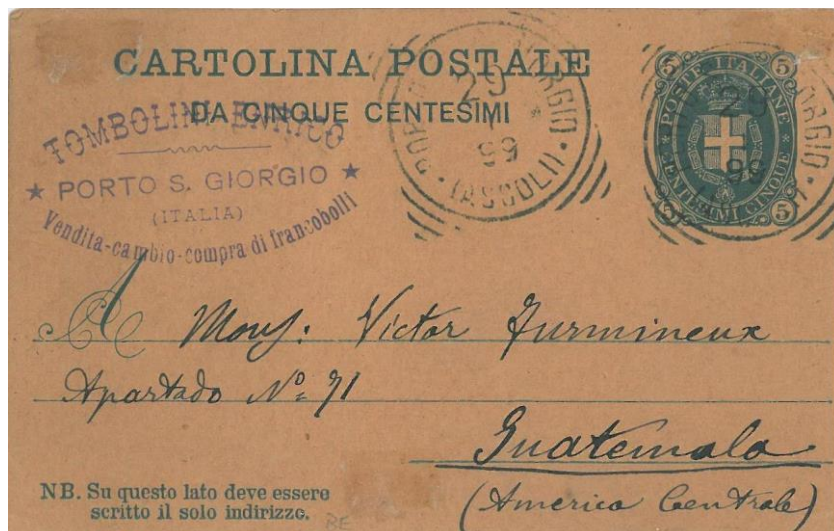 CARTOLINA POSTALE
DA CINQUE CENTESIMI
TOMBOLINI ENRICO
★ PORTO S. GIORGIO ★
(ITALIA)
Vendita-cambio-compra di francobolli
GIORGIO
29
99
(ASCOLI)
5 5
POSTE ITALIANE
29
99
CENTESIMI CINQUE
5 5
A Mons: Victor
Apartado Nº 71
Guatemala
(America Centrale)
NB. Su questo lato deve essere
scritto il solo indirizzo.
BE